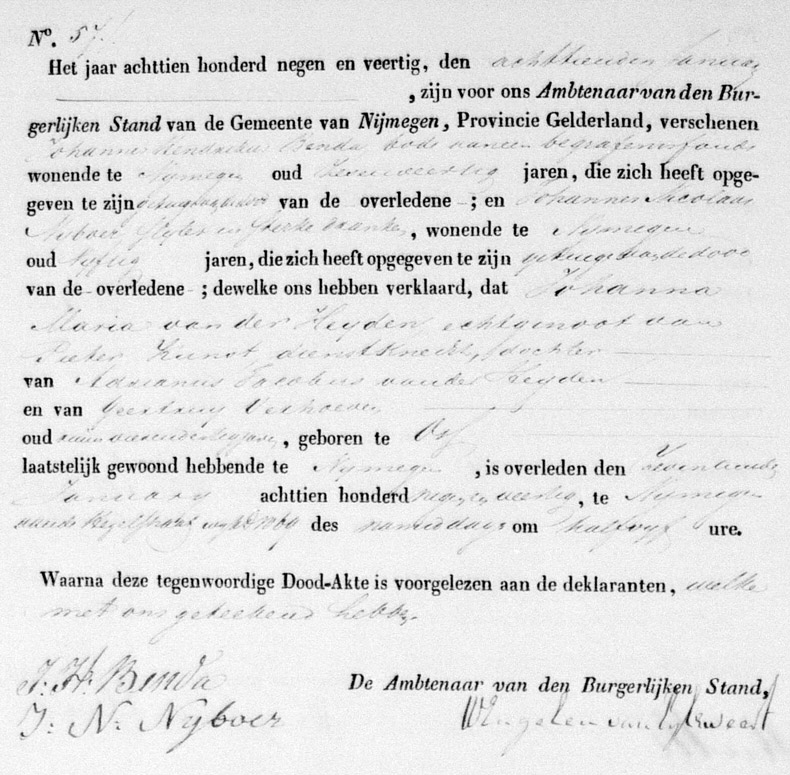 No. 57.
Het jaar achttien honderd negen en veertig, den achttienden Januarij
, zijn voor ons Ambtenaar van den Bur-
gerlijken Stand van de Gemeente van Nijmegen, Provincie Gelderland, verschenen
Johannes Hendrikus Benda, bode van een begrafenisfonds
wonende te Nijmegen oud jaren, die zich heeft opge-
geven te zijn van de overledene ; en Johannes Nicolaas
Nyboer in sterke dranken, wonende te Nijmegen
oud vyftig jaren, die zich heeft opgegeven te zijn
van de overledene ; dewelke ons hebben verklaard, dat Johanna
Maria van der Heyden, echtgenoot van
Pieter Kunst, dienstknecht, dochter
van Adrianus Jacobus van der Heyden
en van Geertruy Verhoeven
oud , geboren te Os
laatstelijk gewoond hebbende te Nymegen , is overleden den zeventiende
Januarij achttien honderd negen en veertig, te Nijmegen
des namiddags om half vyf ure.
Waarna deze tegenwoordige Dood-Akte is voorgelezen aan de deklaranten, welke
met ons geteekend hebben.
J: H: Benda
J: N: Nyboer
De Ambtenaar van den Burgerlijken Stand,